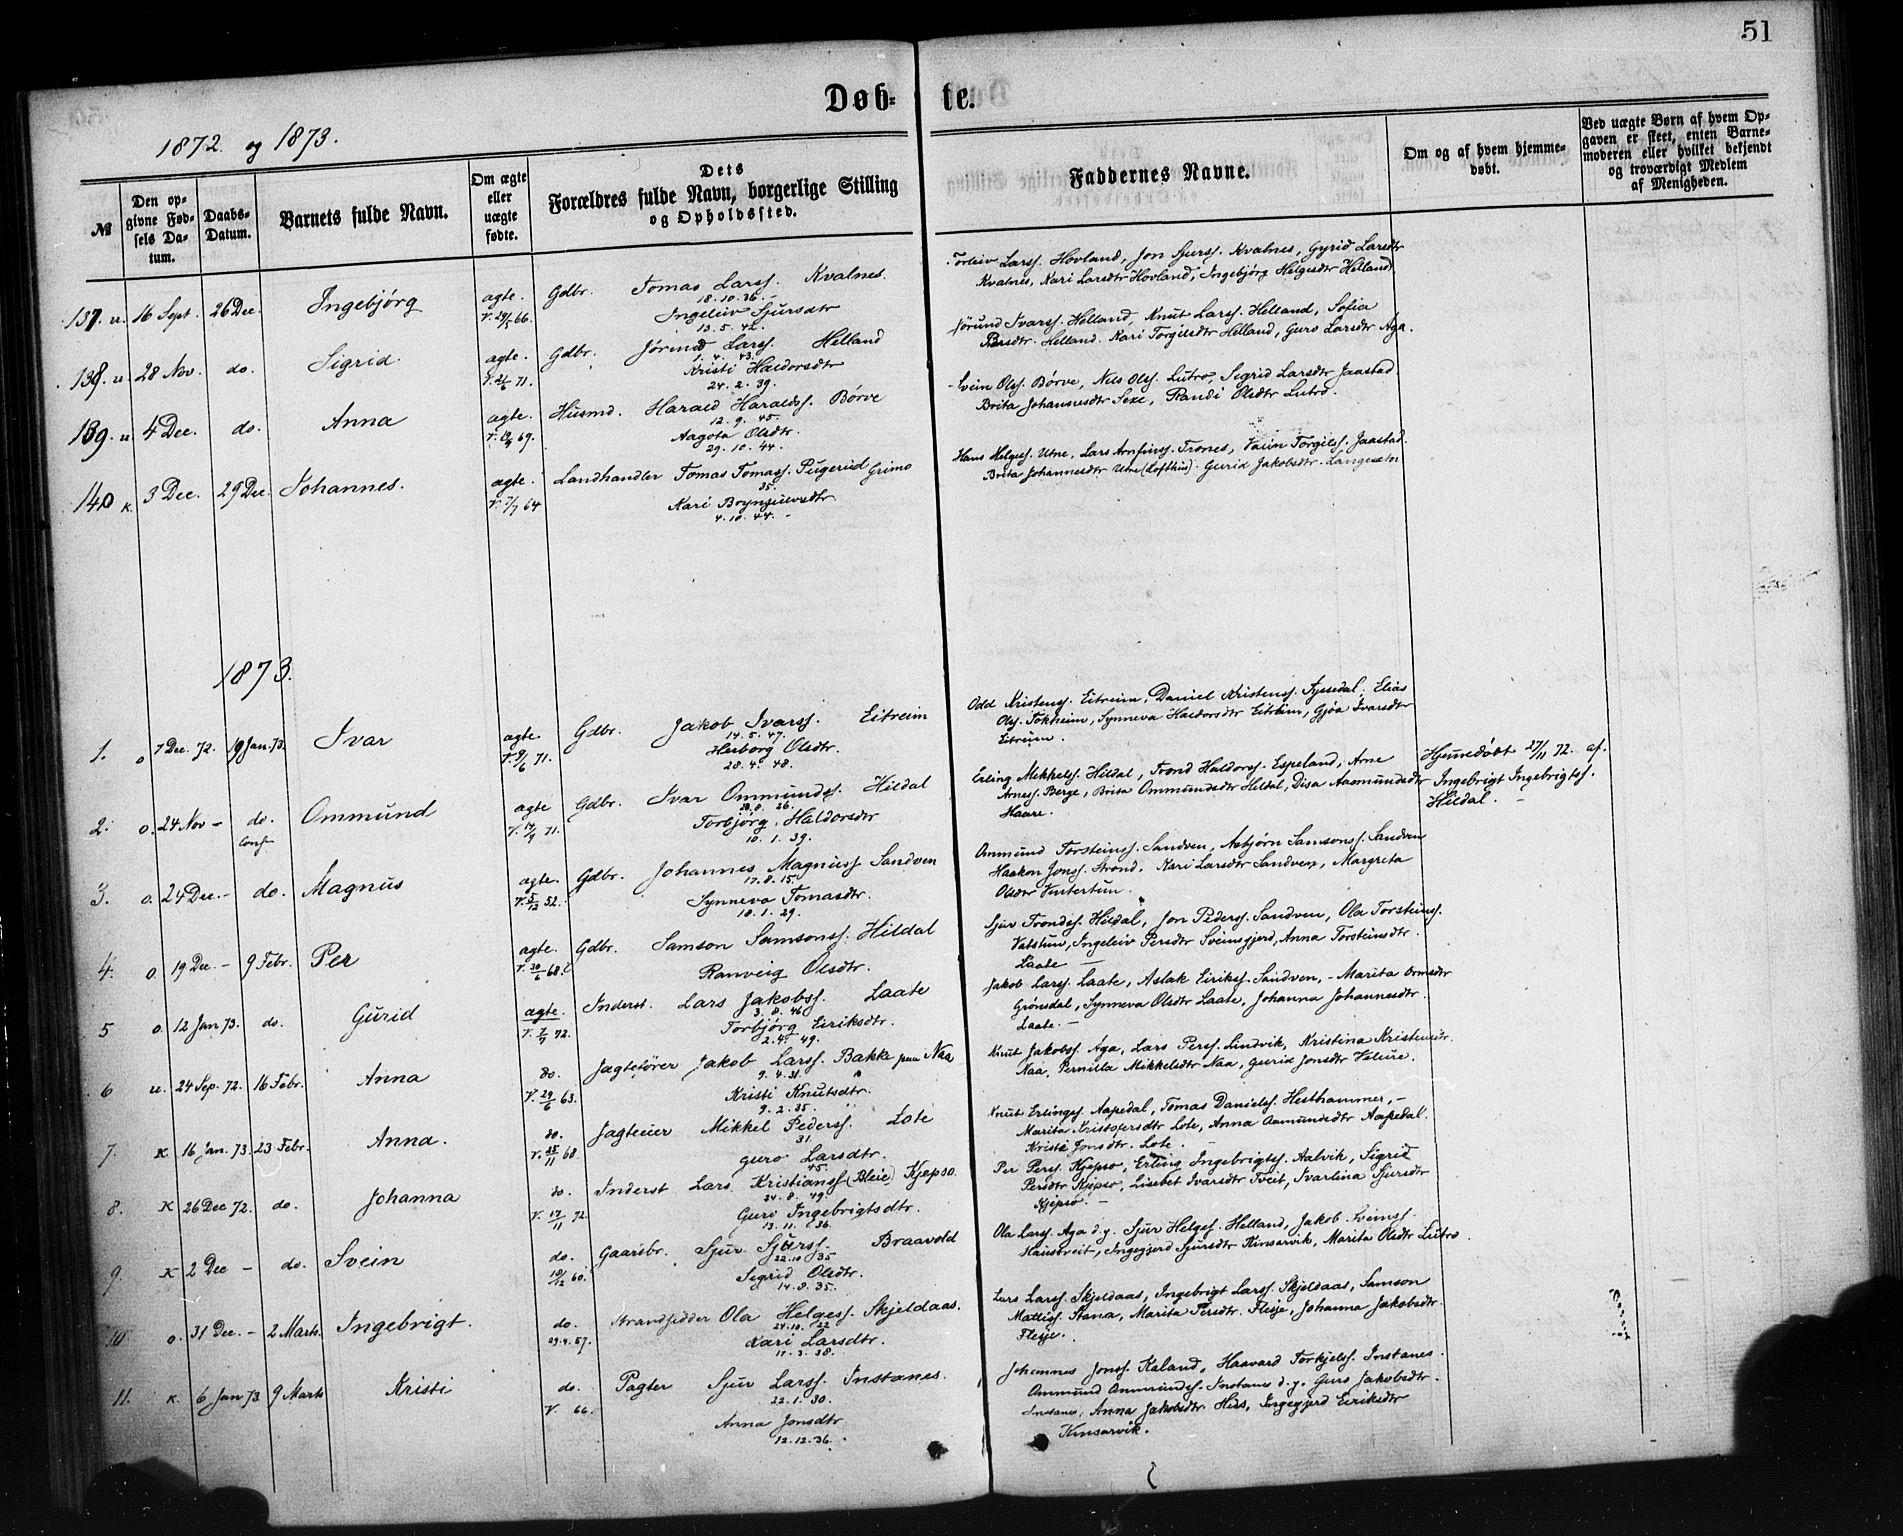 51
Døb-te.
1872 og 1873.
№
Den op-
givne Fød-
sels Da-
tum.
Daabs-
Datum.
Barnets fulde Navn.
Om ægte
eller
uægte
fødte.
Dets
Forældres fulde Navn, borgerlige Stilling
og Opholdssted.
Faddernes Navne.
Om og af hvem hjemme-
døbt.
Ved uægte Børn af hvem Op-
gaven er skeet, enten Barne-
moderen eller hvilket bekjendt
og troværdigt Medlem
af Menigheden.
137. u. 16 Sept. 26 Dec. Ingebjørg ægte. Gdbr. Tomas Larss. Kvalnes.
18.10.36.
V. 24/5 66. Ingeleiv Sjursdtr
13.5.42.
Torleiv Larss. Hovland, Jon Sjurss. Kvalnes, Gyrid Larsdtr
Kvalnes, Kari Larsdtr Hovland, Ingebjörg Helgesdtr Helland.
138. u. 28 Nov. do. Sigrid. ægte. Gdbr. Jörund Larss. Helland
1.4.43.
V. 71. Kristi Haldorsdtr
24.2.39.
Jörund Ivarss. Helland, Knut Larss. Helland, Sofia
Persdtr. Helland. Kari Torgilsdtr Helland, Guro Larsdtr Aga.
139. u. 4 Dec. do. Anna ægte. Husmd. Harald Haraldss. Börve
12.9.45.
V. 69. Aagota Olsdtr.
29.10.44.
Svein Olss. Börve, Nils Olss. Lutro, Sigrid Larsdtr Jaastad
Brita Johannesdtr Sexe, Randi Olsdtr Lutro.
140 K. 3 Dec. 29 Dec. Johannes. ægte. Landhandler Tomas Tomass. Pugerud Grimo
35.
V. 7/7 64 Kari Brynjulvsdtr
4.10.44.
Hans Helgess. Utne, Lars Arnfinss. Trones, Torgilss. Jaastad.
Brita Johannesdtr Utne (Lofthus). Gurid Jakobsdtr. Langesæter
1873.
1. o 7 Dec. 72. 19 Jan. 73. Ivar ægte. Gdbr. Jakob Ivarss. Eitreim
14.5.47.
V. 9/6 71. Herborg Olsdtr.
28.4.48.
Odd Kristenss. Eitreim, Daniel Kristenss. Tyssedal, Elias
Olss. Tokheim, Synneva Haldorsdtr Eitreim, Gjöa Ivarsdtr
Eitreim.
2. o. 24 Nov - do. Ommund ægte Gdbr. Ivar Ommundss. Hildal
26.
V. 71. Torbjörg Haldorsdtr
10.1.39.
Erling Mikkelss. Hildal, Trond Haldorss. Espeland, Arne
Arness. Berge, Brita Ommundsdtr Hildal, Disa Aamundsdtr
Haare.
Hjemedöbt 27/11 72. af.
Ingebrigt Ingebrigtss.
Hildal.
conf
3. o. 24 Dec. - do. Magnus ægte. Gdbr. Johannes Magnuss Sandven
17.8.15.
V. 5/12 52. Synneva Tomasdtr.
10.1.29.
Ommund Torsteinss. Sandven, Asbjörn Samsonss. Sandven
Haakon Jonss. Strand. Kari Larsdtr Sandven, Margreta
Olsdtr Vintertun.
4. o. 19 Dec. - 9 Febr. Per ægte. Gdbr. Samson Samsonss. Hildal
V. 20/6 68. Ranveig Olsdtr.
Sjur Trondss. Hildal, Jon Pederss. Sandven, Ola Torsteinss.
Vatstun, Ingeleiv Persdtr Sveinsgjerd, Anna Torsteinsdtr.
Laate
5 o. 12 Jan 73. do. Gurid ægte. Inderst. Lars Jakobss. Laate
3.8.46
V. 72. Torbjörg Eiriksdtr.
2.4.49.
Jakob Larss. Laate, Aslak Eirikss. Sandven, - Marita Ormsdtr
Grönsdal, Synneva Olsdtr Laate, Johanna Johannesdtr.
Laate.
6 u. 24 Sep. 72. 16 Febr. Anna do. Jægtefører Jakob Larss. Bakke paa Naa
9.4.31.
V. 29/6 63. Kristi Knutsdtr.
9.2.35.
Knut Jakobss. Aga, Lars Perss. Lindvik, Kristina Kristensdtr.
Naa, Pernilla Mikkelsdtr Naa, Gurid Jonsdtr Velure.
7. K 16 Jan. 73. 23 Febr. Anna. do. Jagteeier Mikkel Pederss. Lote
31.
V. 25/11 68 Guro Larsdtr.
45.
Knut Erlingss. Aapedal, Tomas Danielss. Hesthammer, -
Marita Kristofersdtr Lote, Anna Aamundsdtr Aapedal.
Kristi Jonsdtr. Lote.
8. K 26 Dec 72. do. Johanna do. Inderst Lars Kristianss (Bleie) Kjepso.
24.8.49.
V. 17/11 72. Guro Ingebrigtsdtr.
13.11.36.
Per Perss. Kjepso, Erling Ingebrigtss. Aalvik, Sigrid
Persdtr Kjepso, Lisebet Ivarsdtr Tveit, Svarlina Sjursdtr
Kjepso.
9. K 2 Dec - do. Svein do. Gaardbr. Sjur Sjurss. Braavold
22.10.35
10/12 60. Sigrid Olsdtr.
14.8.35.
Ola Larss. Aga d.y. Sjur Helgess. Helland, Jakob Sveinss.
Haustveit, Ingegjerd Sjursdtr Kinsarvik, Marita Olsdtr Lutro.
10 o. 31 Dec. - 2 Marts. Ingebrigt. do. Strandsidder Ola Helgess. Skjeldaas.
24.10.22
29.4.57. Kari Larsdtr.
17.3.38.
Lars Larss. Skjeldaas, Ingebrigt Larss. Skjeldaas, Samson
Mattiss. Stana, Marita Persdtr. Fleije, Johanna Jakobsdtr.
Fleije.
11. K. 6 Jan 73. 9 Marts Kristi do. Pagter Sjur Larss. Instanes.
22.1.30.
V. 66. Anna Jonsdtr
12.12.36.
Johannes Jonss. Kaland, Haavard Torkjelss. Instanes.
Ommund Ommundss. Instanes d.y. Guro Jakobsdtr.
Instanes, Anna Jakobsdtr. Hess, Ingegjerd Eiriksdtr
Kinsarvik.